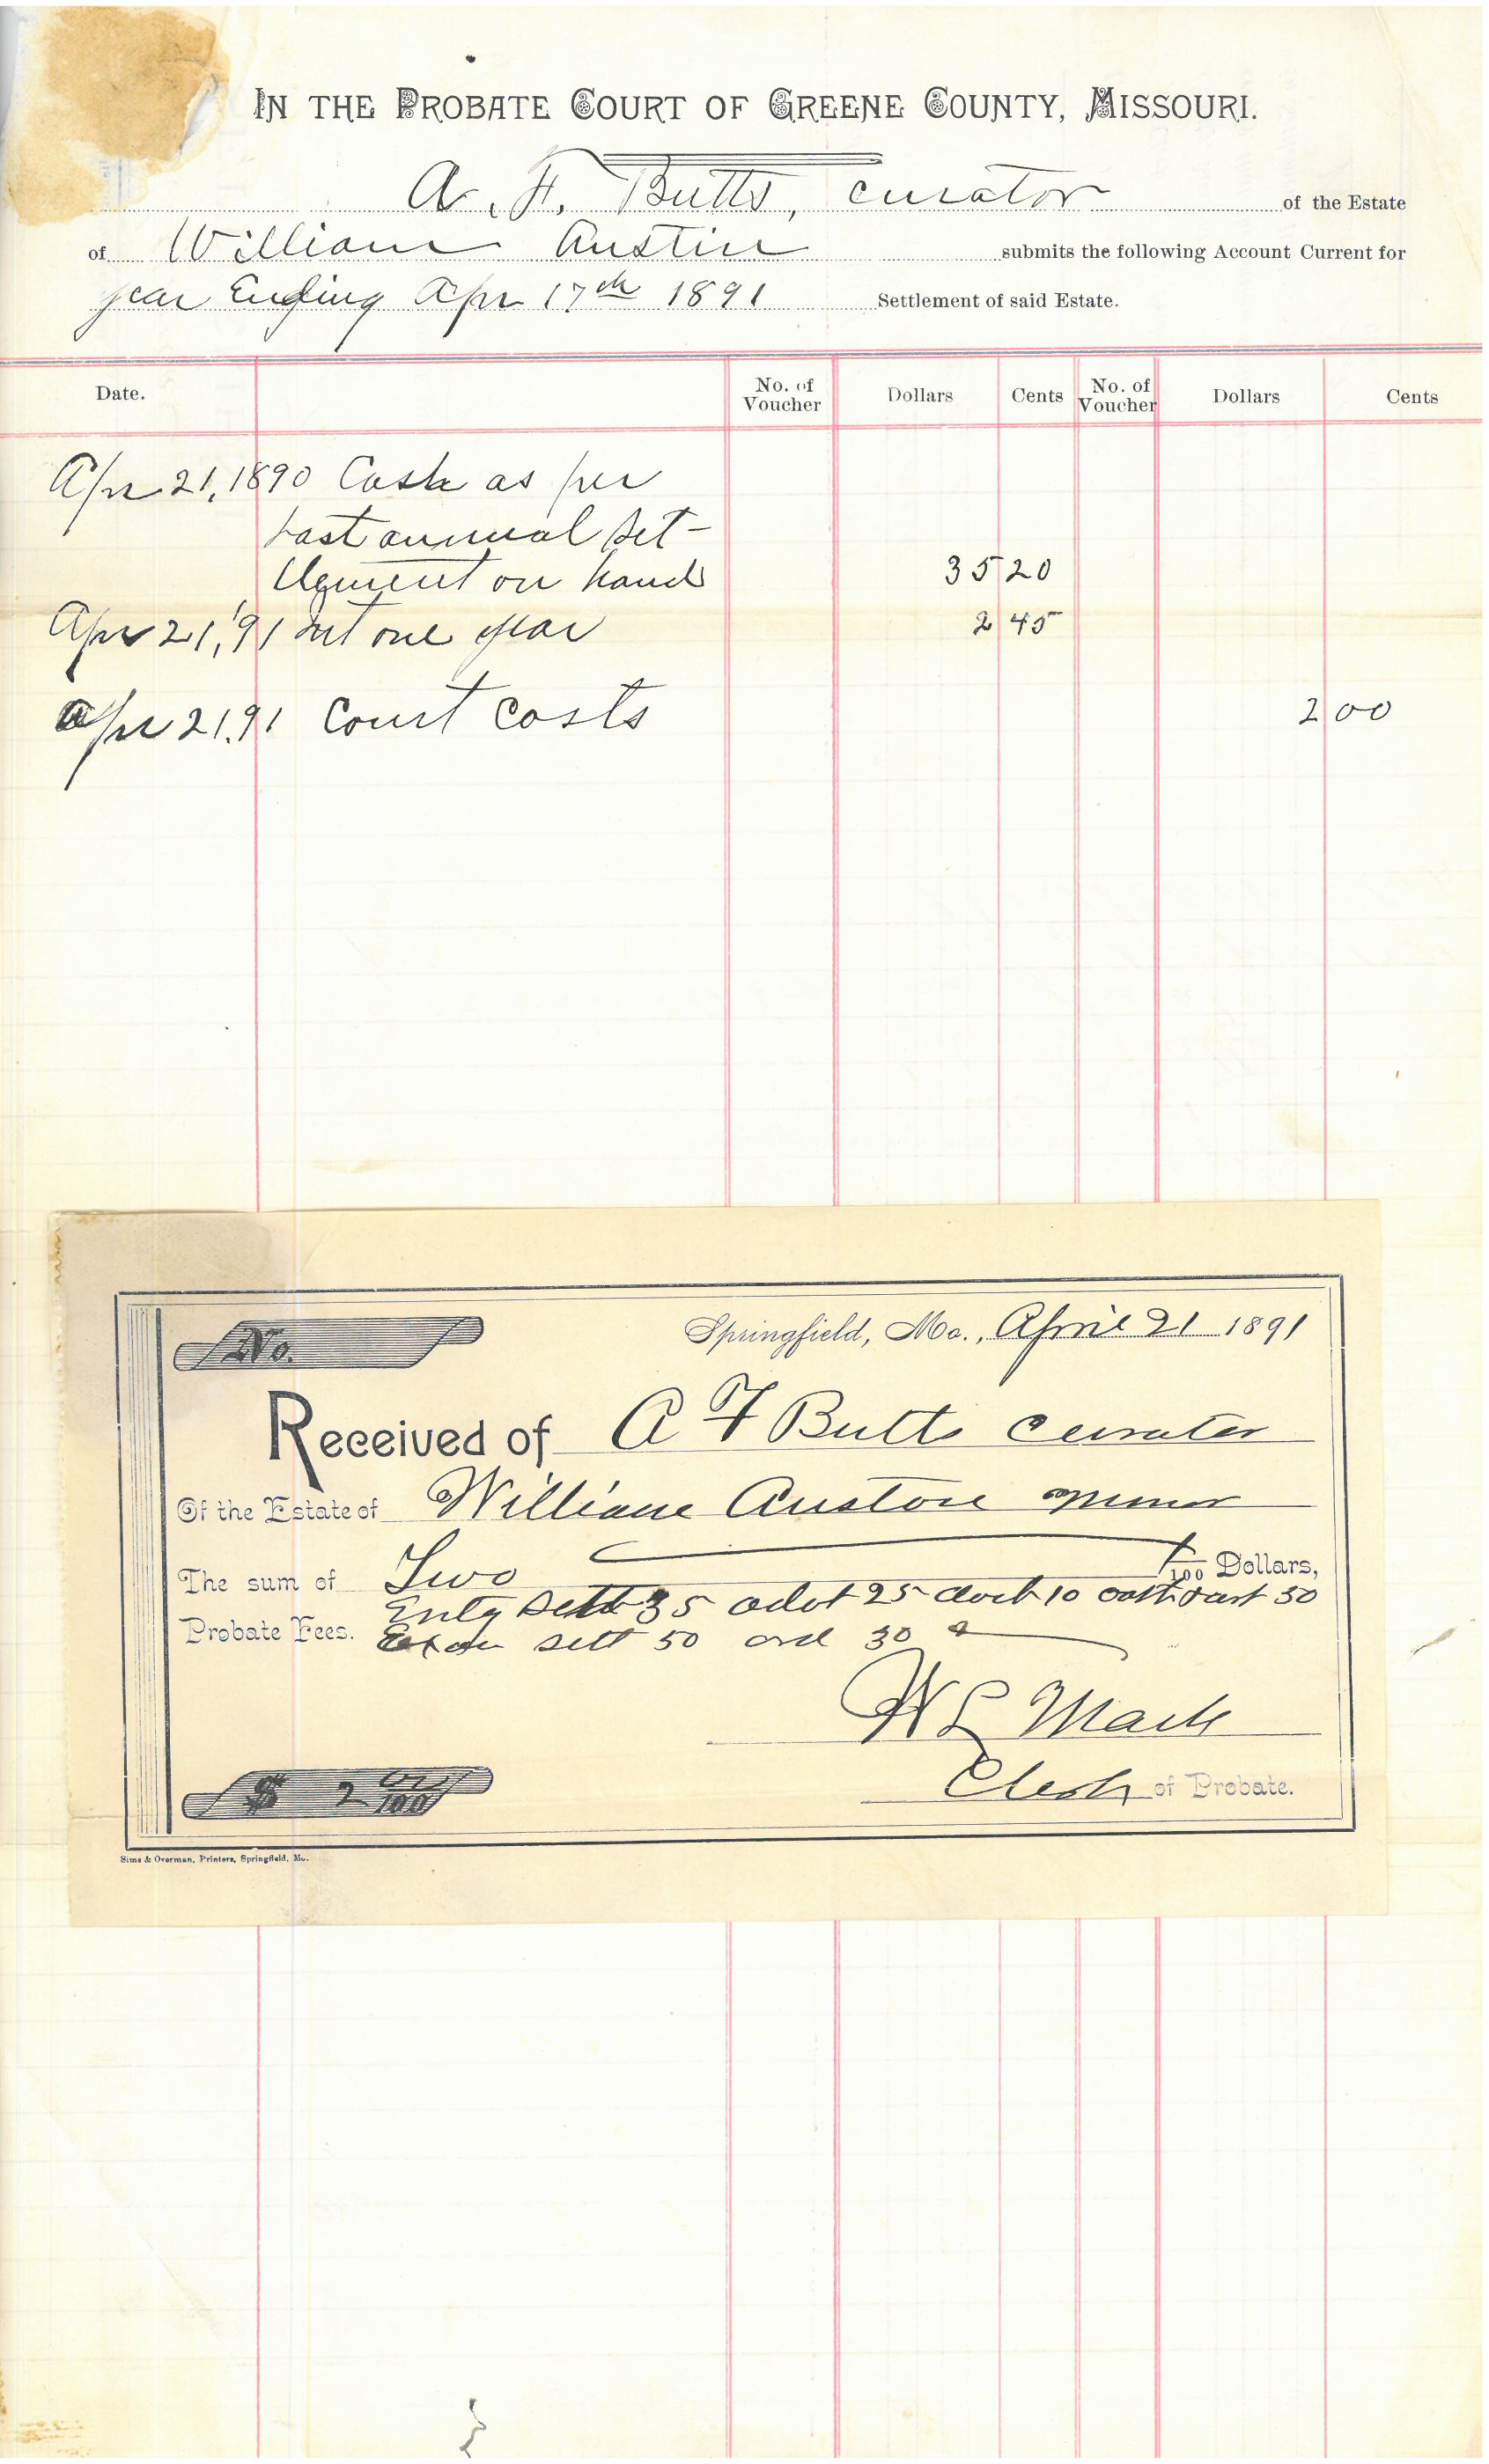 IN THE PROBATE COURT OF GREENE COUNTY, MISSOURI.
A. F. Butts, curator of the Estate
of William Austin submits the following Account Current for
year Ending Apr 17th 1891 Settlement of said Estate.
Date. No. of Voucher Dollars Cents No. of Voucher Dollars Cents
Apr 21, 1890 Cash as per
Last annual Set-
tlement on hand 35 20
Apr 21, '91 Int one year 2 45
Apr 21, 91 Court Costs 2 00
No. Springfield, Mo., April 21 1891
Received of A F Butts Curator
Of the Estate of William Auston minor
The sum of Two /100 Dollars,
Entg Sett 35 25 10 50
Probate Fees. Exam sett 50 ord 30
Clerk of Probate.
$ 2 00/100
Sims & Overman, Printers, Springfield, Mo.